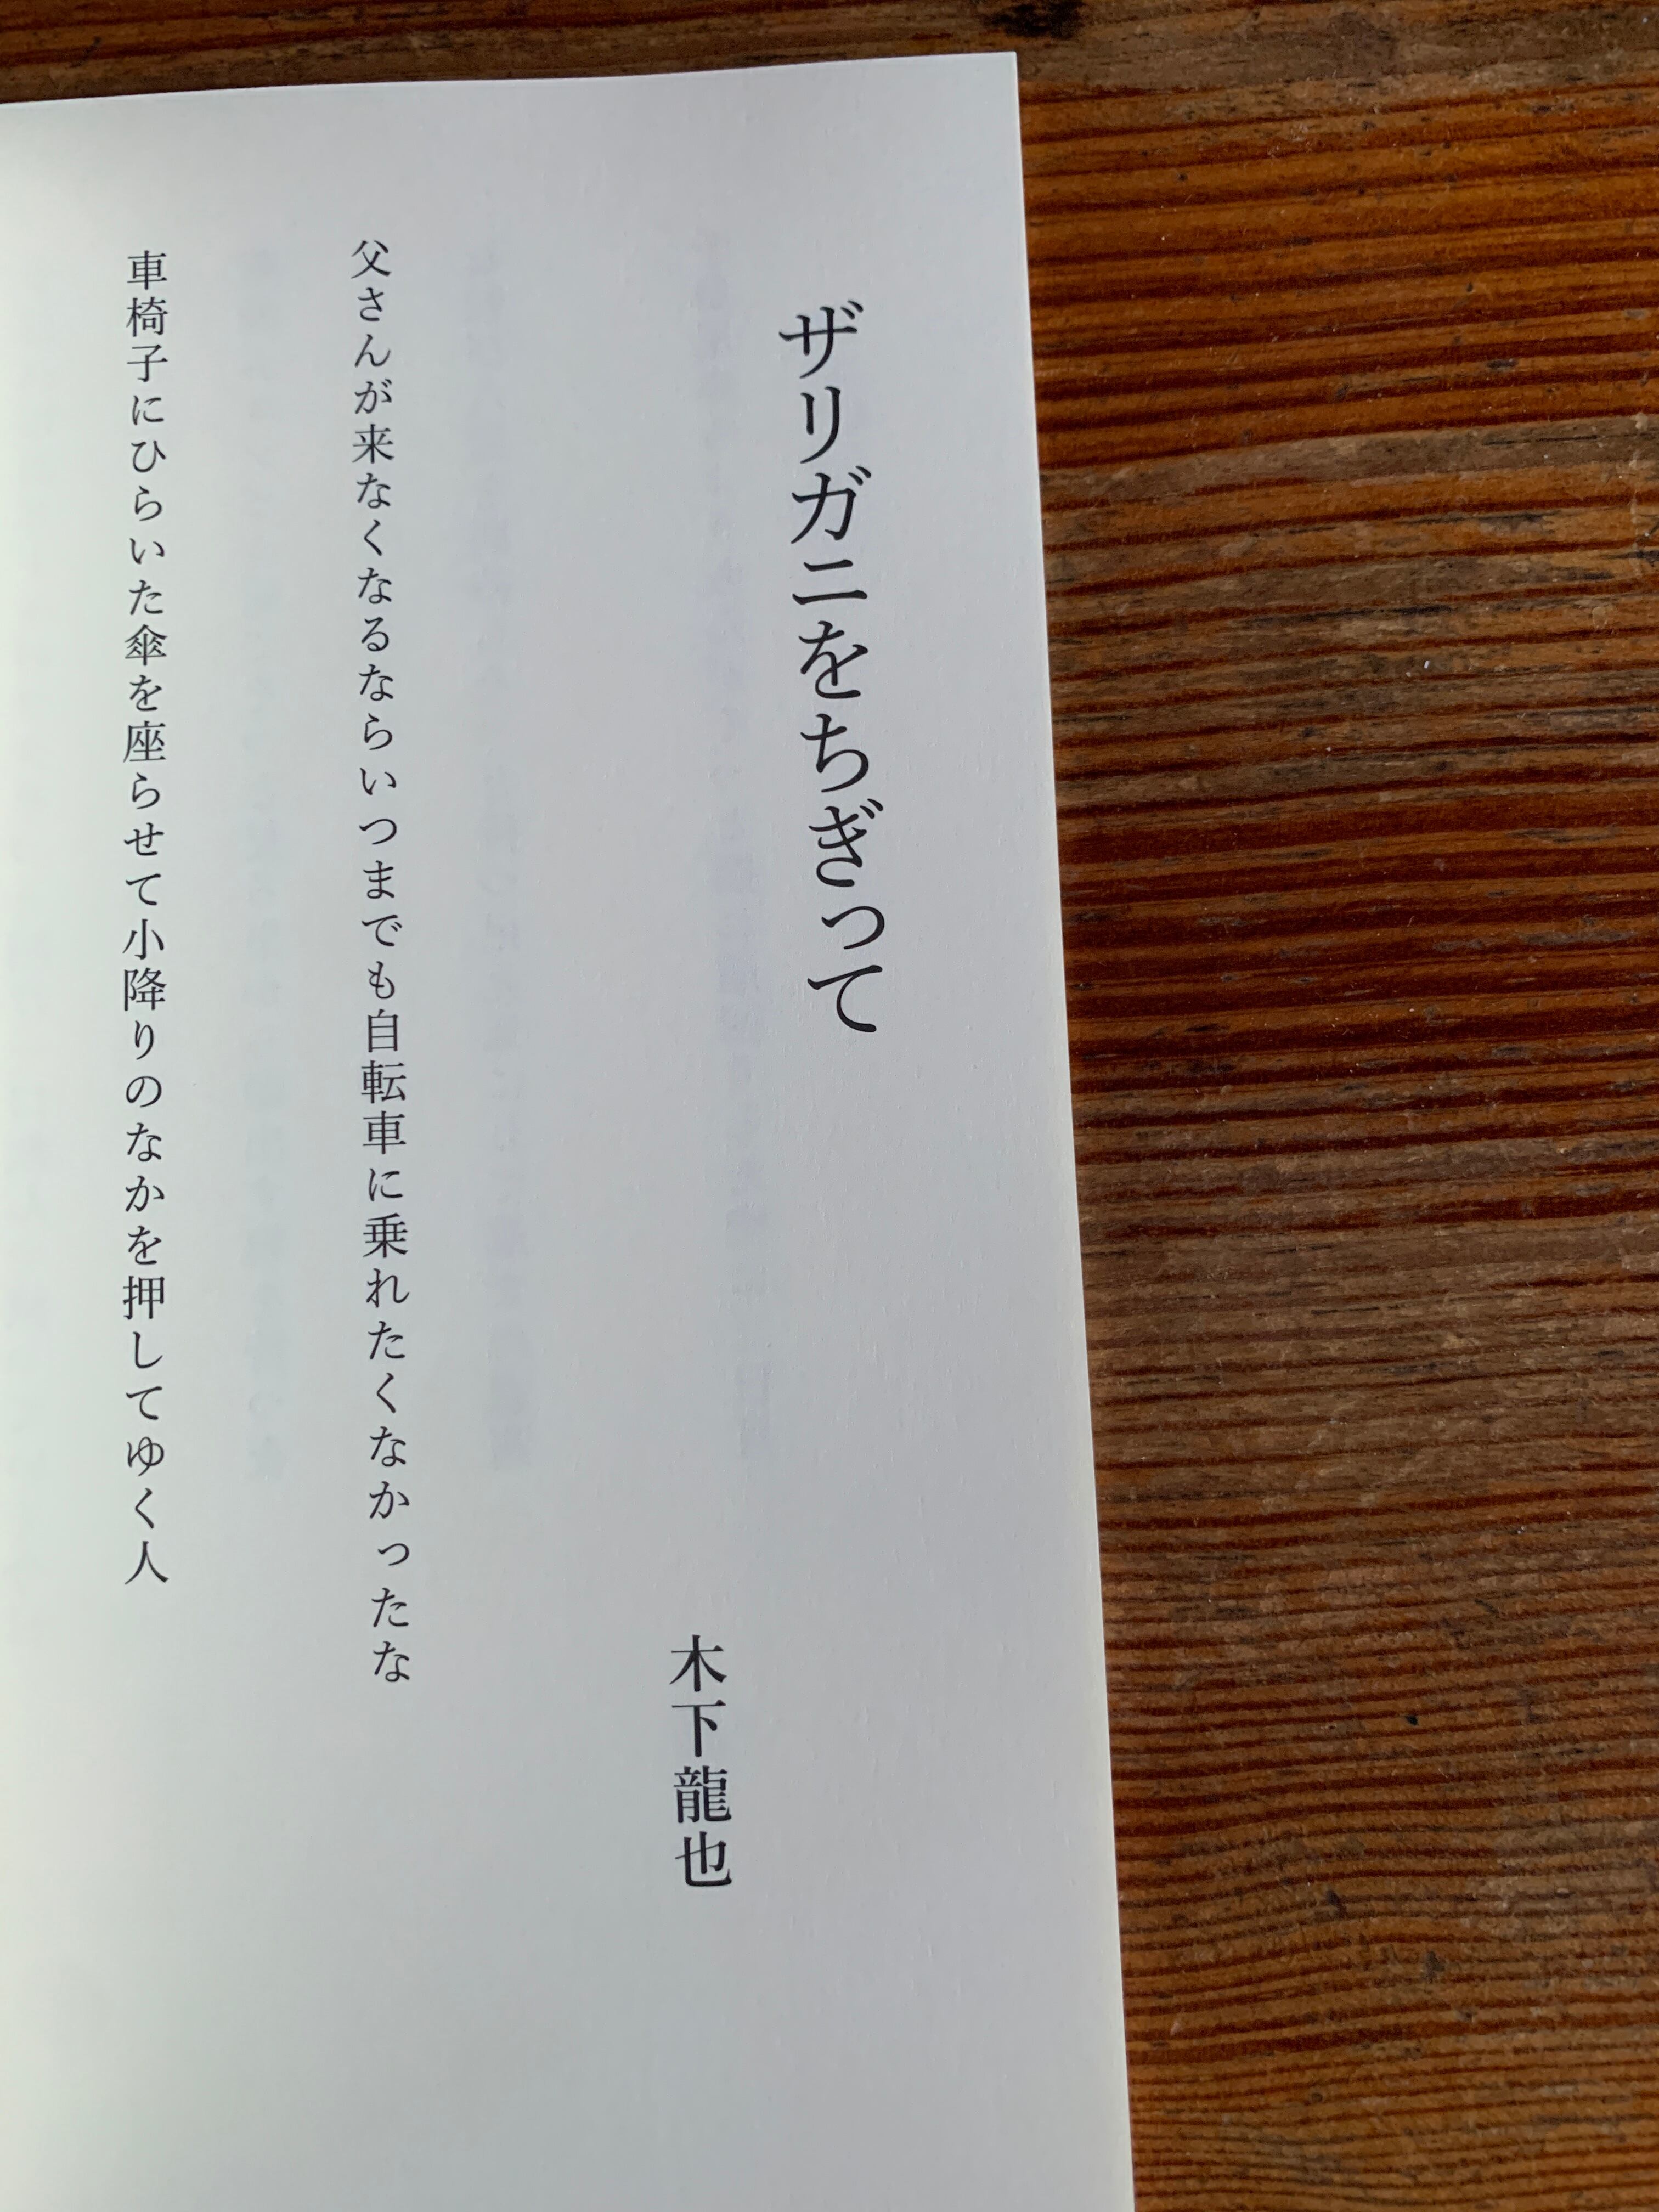 ザリガニをちぎって
木下龍也
父さんが来なくなるならいつまでも自転車に乗れたくなかったな
車椅子にひらいた傘を座らせて小降りのなかを押してゆく人